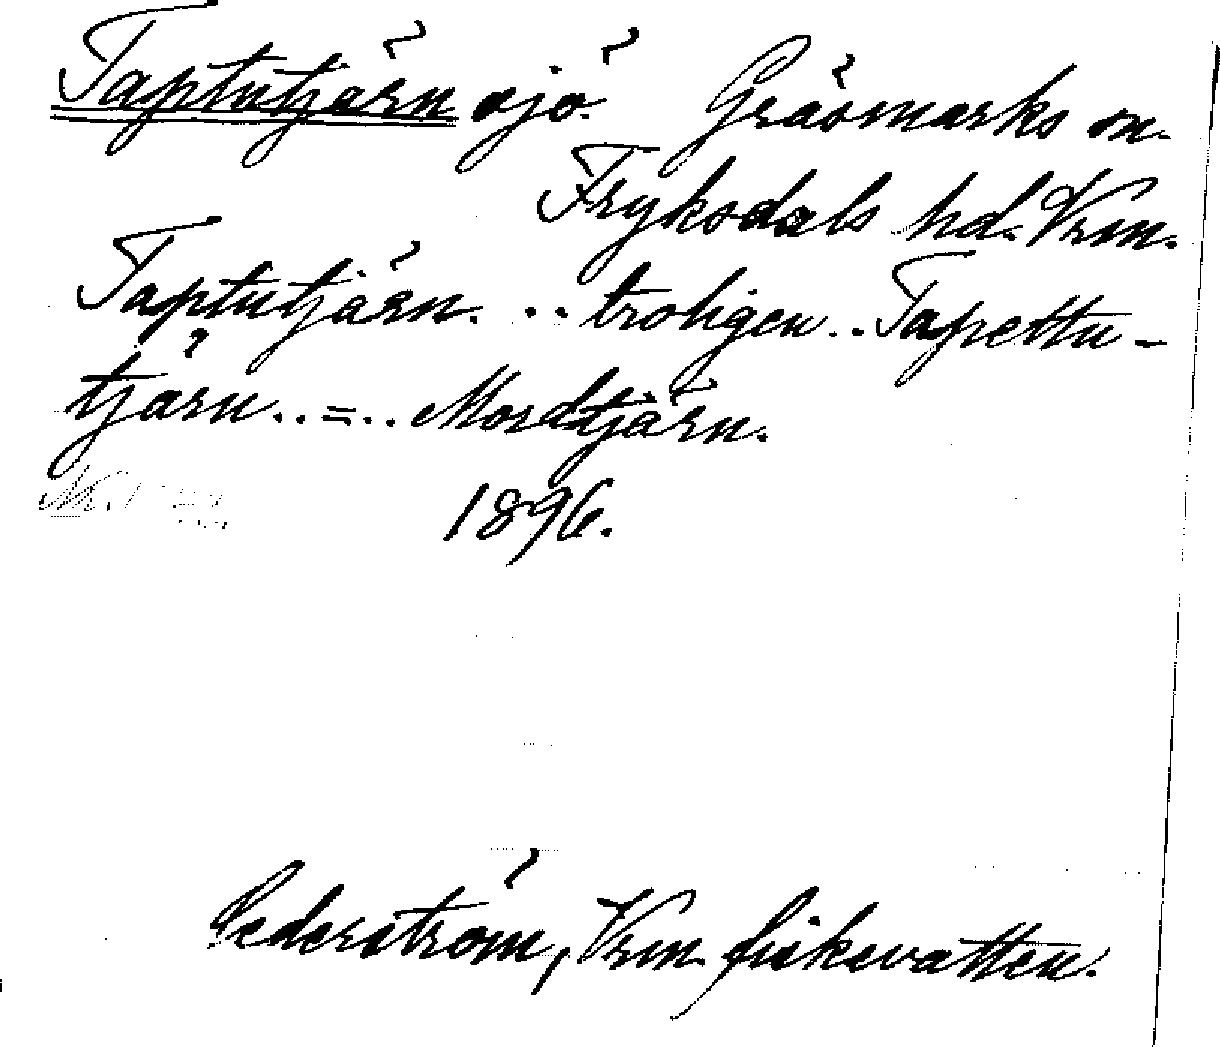 Taptutjärn sjö. Gräsmarks sn.
Fryksdals hd. Vrm.
Taptutjärn. .. troligen .. Tapettu-
tjärn .. = .. Mordtjärn.
1896.
Cederström, Vrm fiskevatten.